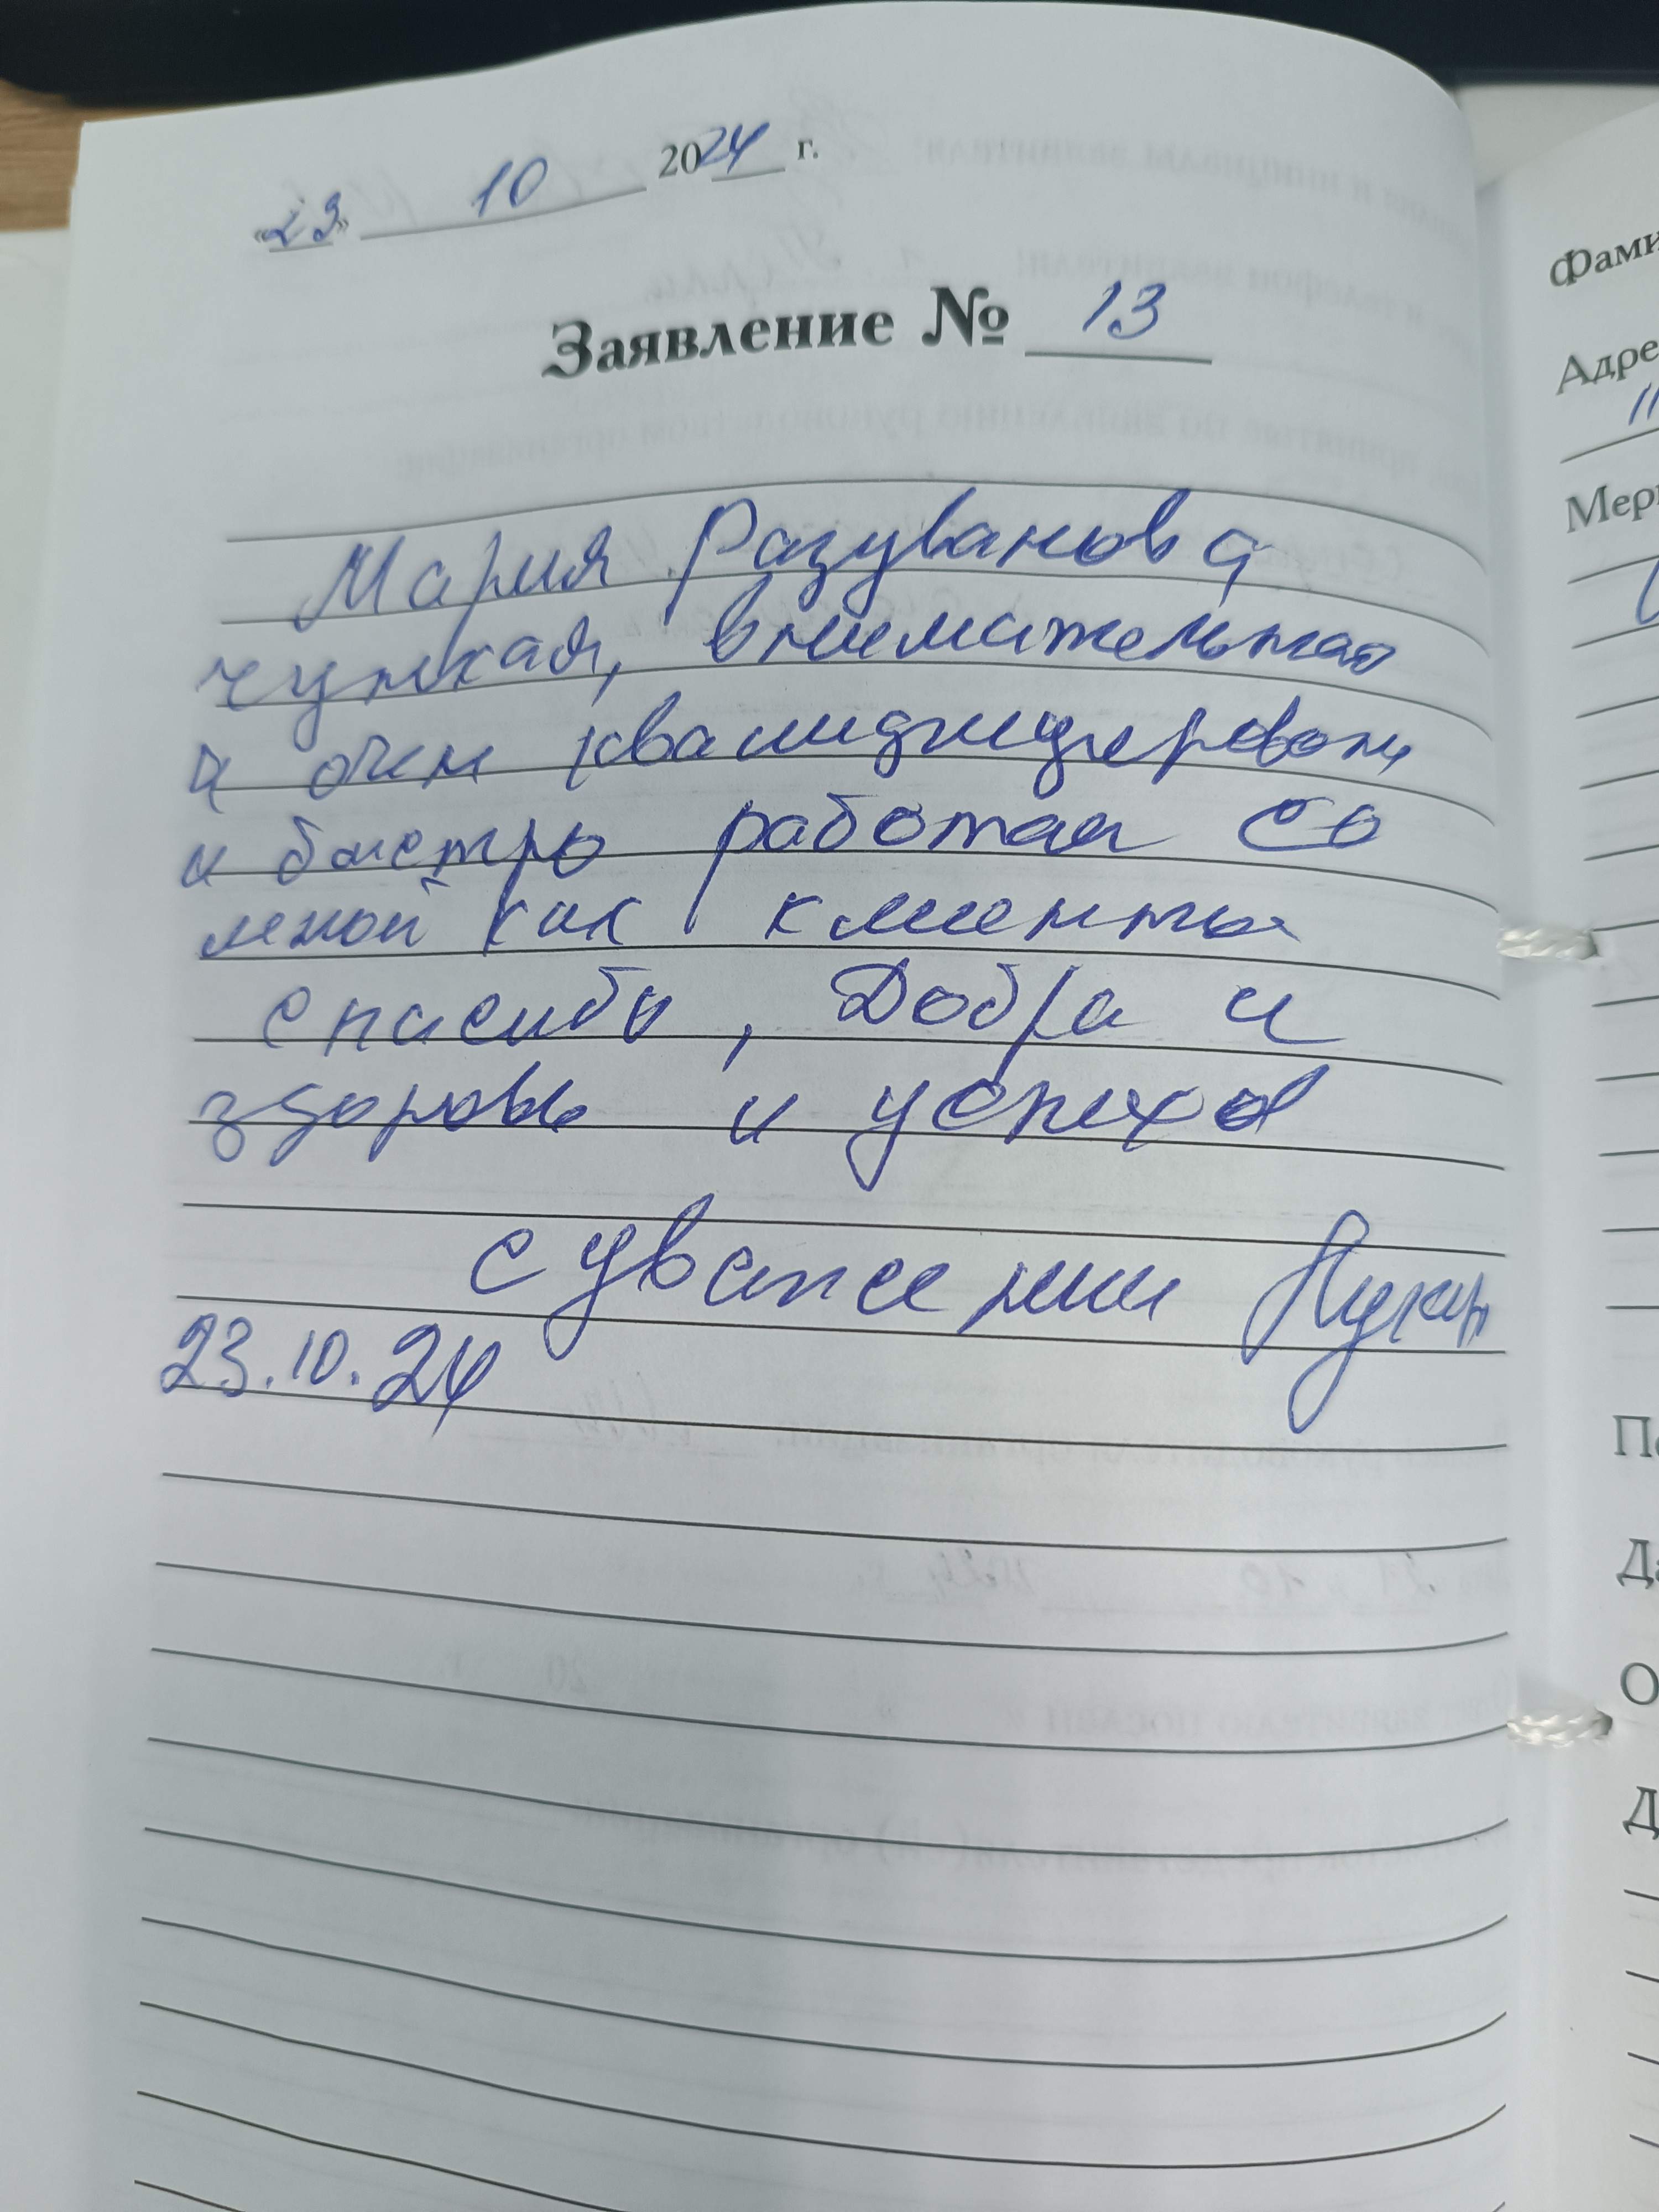 «23» 10 2024 г.
Заявление № 13
Мария Разуванова
чуткая, внимательная
и очен квалифицирован
и быстро работая со
мной как клиенты
спасибо, Добра и
здоровь и успехов
с уважении
23.10.24
Фами
Адре
11
Мери
По
Да
О
Д